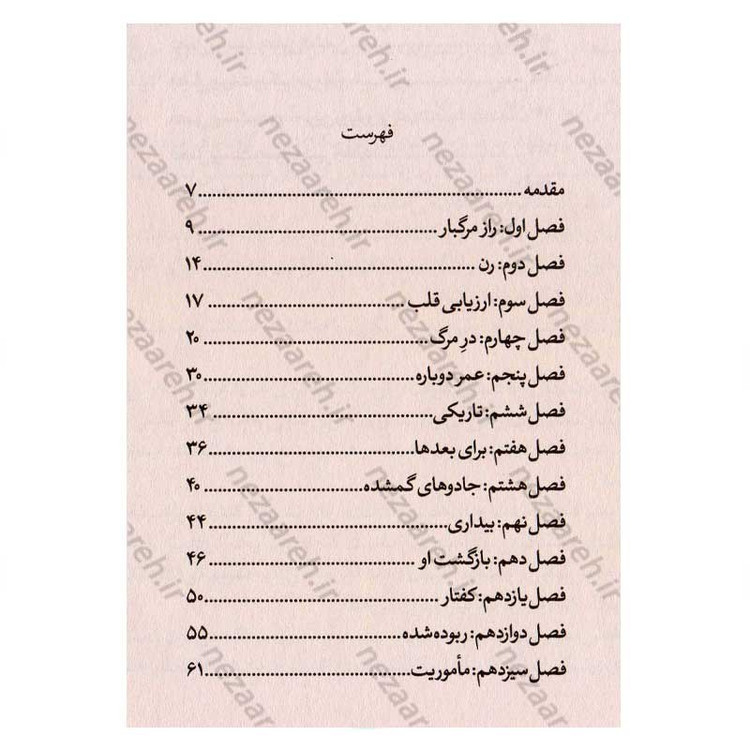 فهرست
مقدمه ........................................................۷
فصل اول: راز مرگبار ........................................۹
فصل دوم: رن ..............................................۱۴
فصل سوم: ارزیابی قلب .................................۱۷
فصل چهارم: درِ مرگ.....................................۲۰
فصل پنجم: عمر دوباره...................................۳۰
فصل ششم: تاریکی.....................................۳۴
فصل هفتم: برای بعدها...................................۳۶
فصل هشتم: جادوهای گمشده...........................۴۰
فصل نهم: بیداری.........................................۴۴
فصل دهم: بازگشت او ...................................۴۶
فصل یازدهم: کفتار .......................................۵۰
فصل دوازدهم: ربوده‌شده.................................۵۵
فصل سیزدهم: مأموریت...................................۶۱
nezaareh.ir